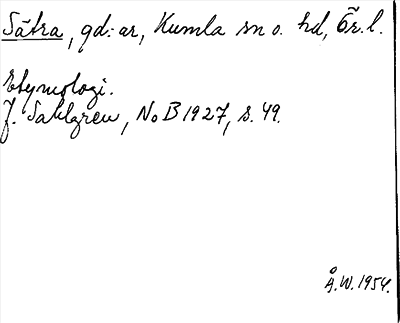 Sätra, gd:ar, Kumla sn o. hd, Ör. l.
Etymologi.
J. Sahlgren, NoB 1927, s. 49.
Å.W. 1954.